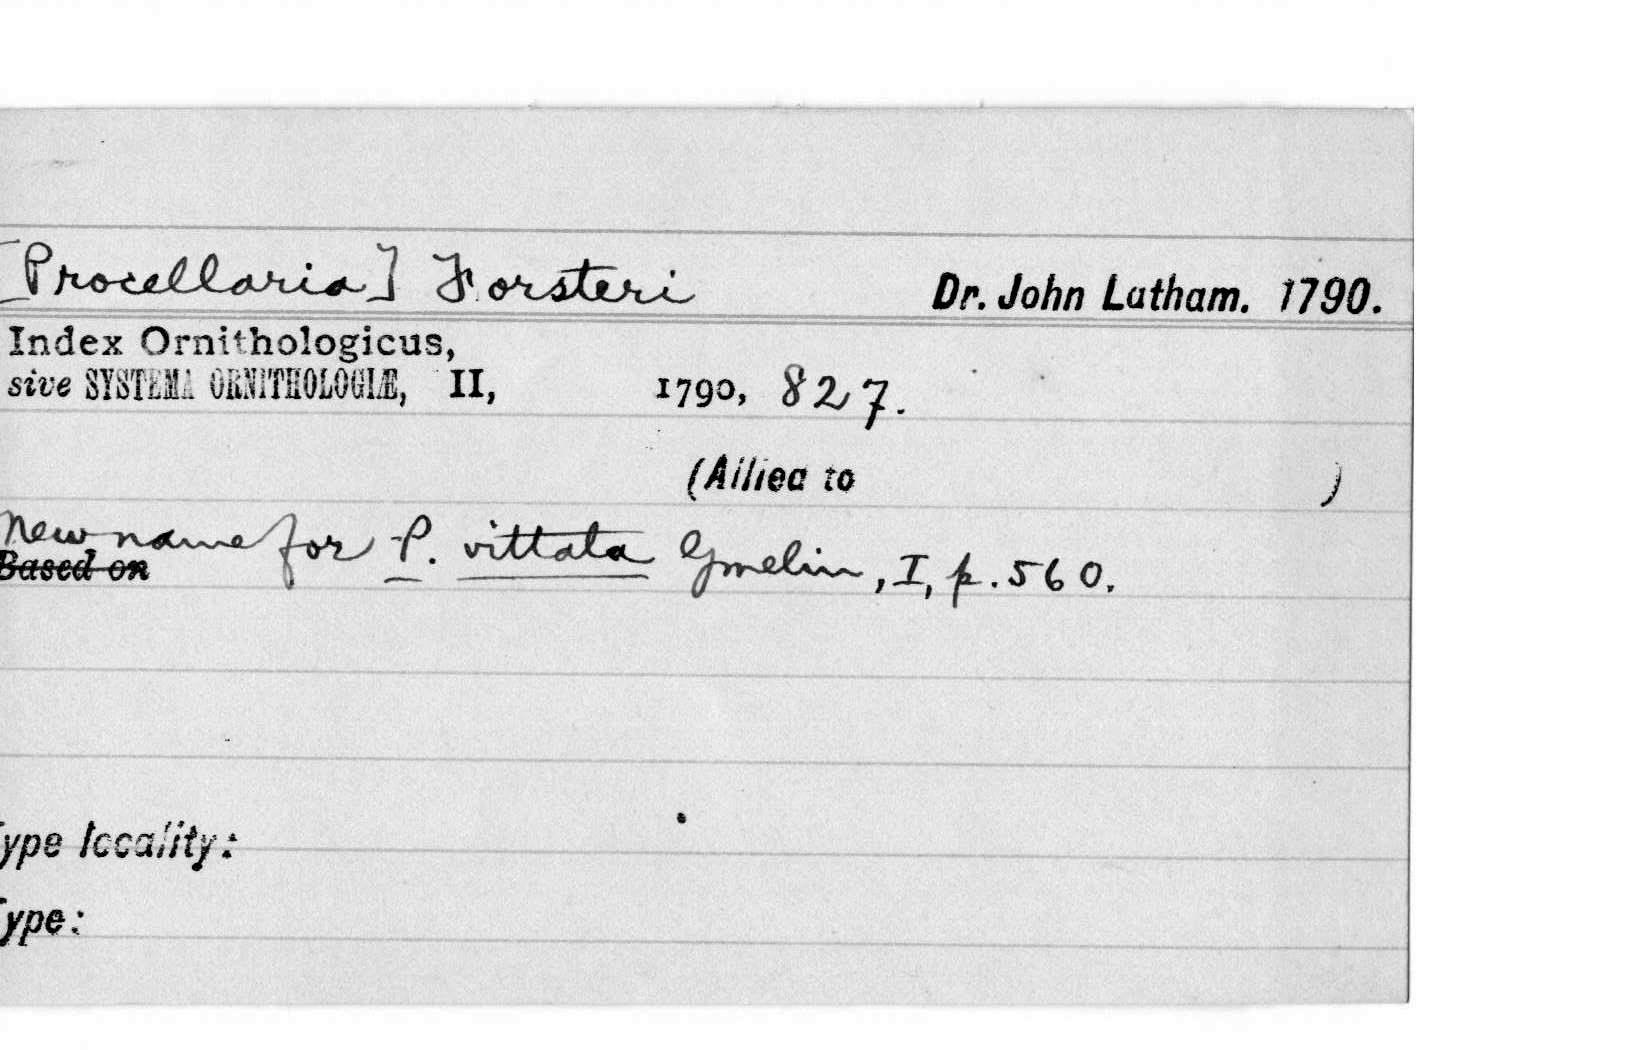 [Procellaria] Forsteri Dr. John Latham. 1790.
Index Ornithologicus,
sive SYSTEMA ORNITHOLOGIÆ, II, 1790, 827.
(Allied to )
New name for P. vittata Gmelin, I, p. 560.
Based on
Type locality:
Type: